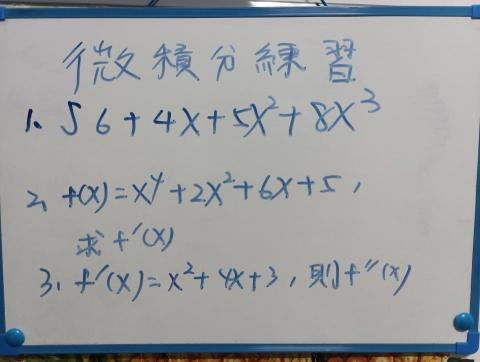 微積分練習
1、∫6+4x+5x²+8x³
2、f(x)=x⁴+2x²+6x+5，
求f′(x)
3、f′(x)=x²+4x+3，則f″(x)